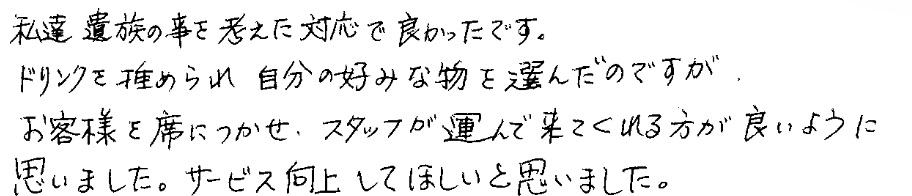 私達遺族の事を考えた対応で良かったです。
ドリンクを推められ自分の好みな物を選んだのですが、
お客様を席につかせ、スタッフが運んで来てくれる方が良いように
思いました。サービス向上してほしいと思いました。